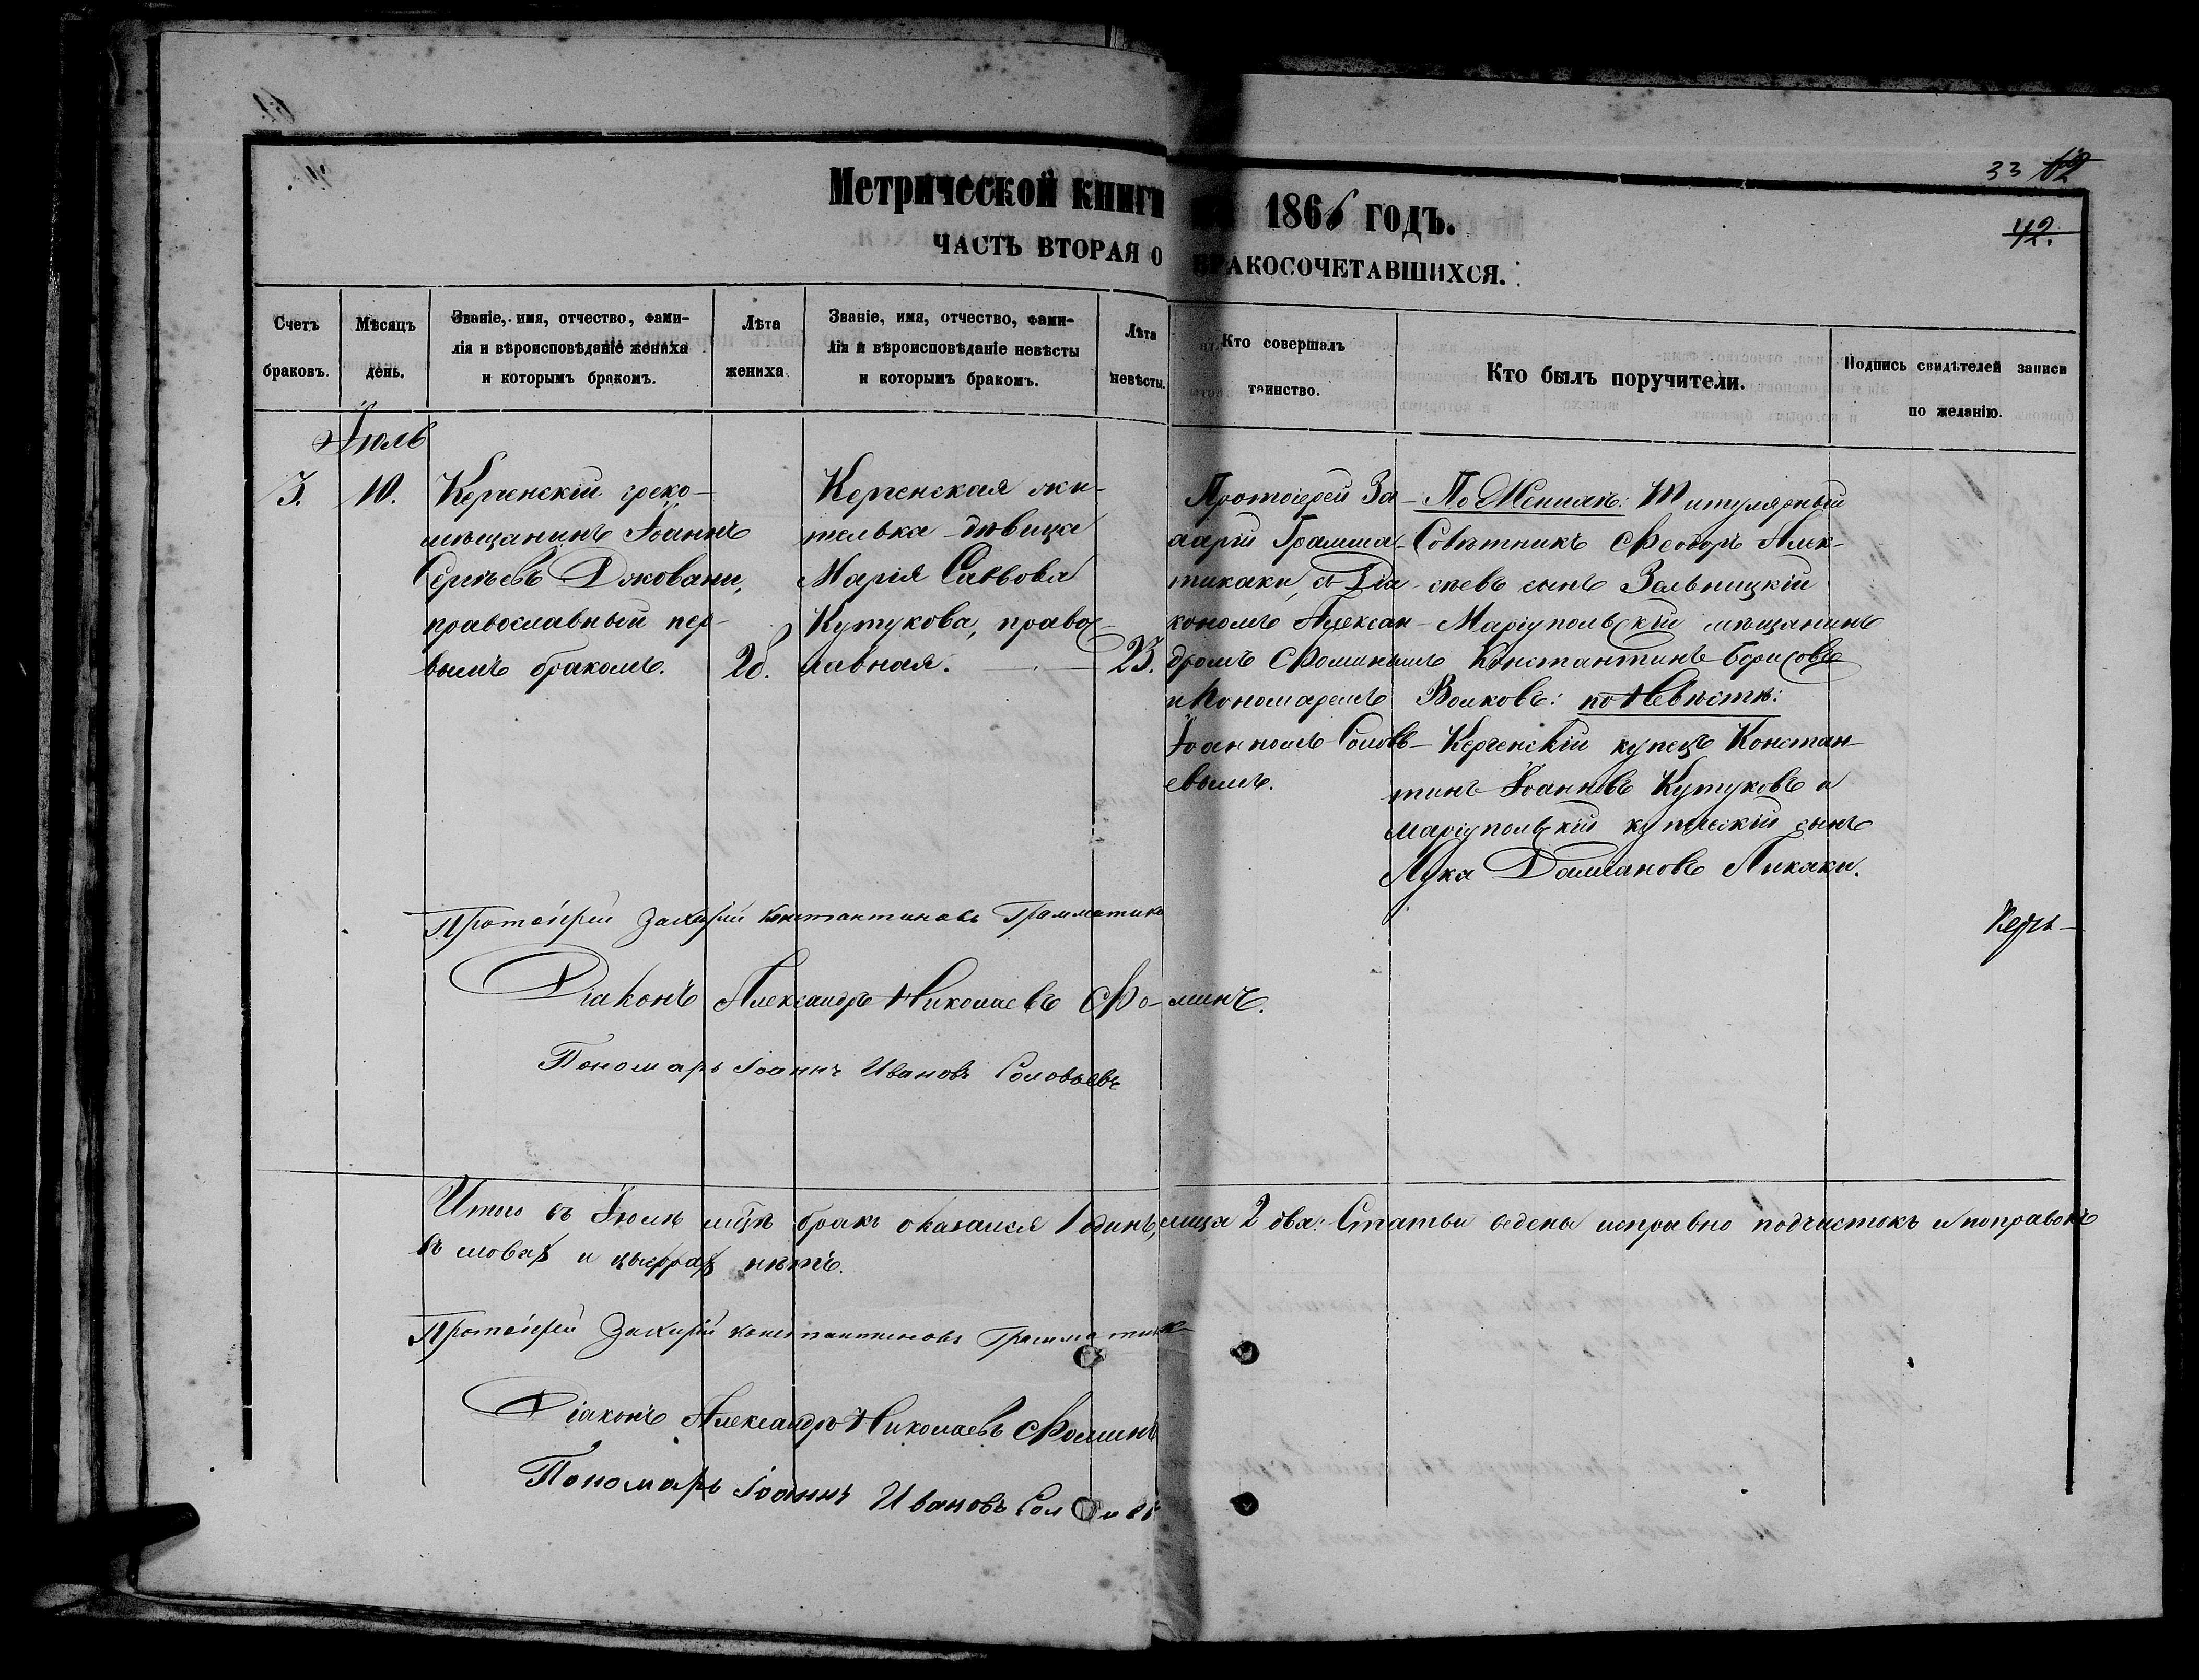 33 62
42.
Метрической книги на 1866 годъ.
ЧАСТЬ ВТОРАЯ О БРАКОСОЧЕТАВШИХСЯ.
Счетъ браковъ.
Мѣсяцъ день.
Званіе, имя, отчество, фами-
лія и вѣроисповѣданіе жениха
и которымъ бракомъ.
Лѣта жениха.
Званіе, имя, отчество, фами-
лія и вѣроисповѣданіе невѣсты
и которымъ бракомъ.
Лѣта невѣсты.
Кто совершалъ
таинство.
Кто былъ поручители.
Подпись свидѣтелей записи
по желанію.
Іюль
3.
10.
Керченскій греко-
мѣщанинъ Іоаннъ
Сергѣевъ Джовани,
православный пер-
вымъ бракомъ.
26.
Керченская жи-
телька дѣвица
Марія Саввова
Кутукова, право-
славная.
23.
Протоіерей За-
харій Грамма-
тикаки, съ Діа-
кономъ Алексан-
дромъ Фоминымъ
и Пономаремъ
Іоанномъ Соловь-
евымъ.
По Женихѣ: Титулярный
Совѣтникъ Феодоръ Алек-
сѣевъ сынъ Зельницкій
Маріупольскій мѣщанинъ
Константинъ Борисовъ
Волковъ: по Невѣстѣ:
Керченскій купецъ Констан-
тинъ Іоанновъ Кутуковъ и
Маріупольскій купеческій сынъ
Лука Даміановъ Пикаки.
Протоіерей Захарій Константиновъ Грамматика
Керч-
Діаконъ Александръ Николаевъ Фоминъ.
Пономарь Іоаннъ Ивановъ Соловьевъ
Итого въ Іюлѣ мцѣ бракъ оказался 1 одинъ, лица 2 два. Статьи ведены исправно подчистокъ и поправокъ
въ словахъ и цыфрахъ нѣтъ.
Протоіерей Захарій Константиновъ Грамматик
Діаконъ Александръ Николаевъ Фоминъ
Пономарь Іоаннъ Ивановъ Соловьевъ